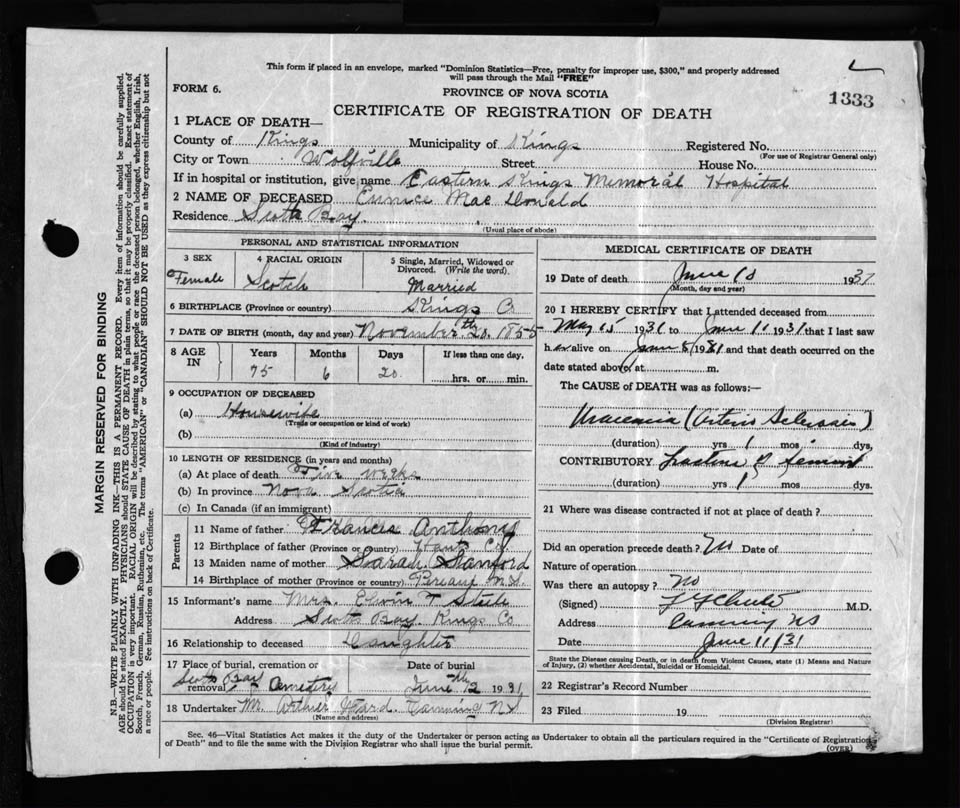 This form if placed in an envelope, marked "Dominion Statistics—Free, penalty for improper use, $300," and properly addressed
will pass through the Mail "FREE"
FORM 6.
PROVINCE OF NOVA SCOTIA
1333
CERTIFICATE OF REGISTRATION OF DEATH
1 PLACE OF DEATH—
County of Kings Municipality of Kings Registered No.
(For use of Registrar General only)
City or Town Wolfville Street House No.
If in hospital or institution, give name Eastern Kings Memorial Hospital
2 NAME OF DECEASED Eunice MacDonald
Residence Scots Bay
(Usual place of abode)
PERSONAL AND STATISTICAL INFORMATION
3 SEX 4 RACIAL ORIGIN 5 Single, Married, Widowed or
Divorced. (Write the word).
Female Scotch Married
6 BIRTHPLACE (Province or country) Kings Co
7 DATE OF BIRTH (month, day and year) November 20th 1855
8 AGE IN Years Months Days If less than one day,
75 6 20 hrs. or min.
9 OCCUPATION OF DECEASED
(a) Housewife
(Trade or occupation or kind of work)
(b)
(Kind of industry)
10 LENGTH OF RESIDENCE (in years and months)
(a) At place of death Five weeks
(b) In province Nova Scotia
(c) In Canada (if an immigrant)
Parents
11 Name of father Francis Anthony
12 Birthplace of father (Province or Country) Hants Co.
13 Maiden name of mother Sarah Sanford
14 Birthplace of mother (Province or country) Pereaux N.S.
15 Informant's name Mrs. Elvin T Steele
Address Scots Bay Kings Co
16 Relationship to deceased Daughter
17 Place of burial, cremation or removal Date of burial
Scots Bay Cemetery June 12th 1931
18 Undertaker Mr. Arthur Ward. Canning N.S.
(Name and address)
MEDICAL CERTIFICATE OF DEATH
19 Date of death June 10 1931
(Month, day and year)
20 I HEREBY CERTIFY that I attended deceased from
May 15 1931 to June 11 1931 that I last saw
her alive on June 8 1931 and that death occurred on the
date stated above, at m.
The CAUSE of DEATH was as follows:—
Uraemia (Arterio Sclerosis)
(duration) yrs 1 mos dys.
CONTRIBUTORY Fracture of Femur
(duration) yrs 1 mos dys.
21 Where was disease contracted if not at place of death?
Did an operation precede death? No Date of
Nature of operation
Was there an autopsy? No
(Signed) M.D.
Address Canning NS
Date June 11/31
State the Disease causing Death, or in death from Violent Causes, state (1) Means and Nature
of Injury, (2) whether Accidental, Suicidal or Homicidal.
22 Registrar's Record Number
23 Filed 19
(Division Registrar)
Sec. 46—Vital Statistics Act makes it the duty of the Undertaker or person acting as Undertaker to obtain all the particulars required in the "Certificate of Registration
of Death" and to file the same with the Division Registrar who shall issue the burial permit.
(OVER)
MARGIN RESERVED FOR BINDING
N.B.—WRITE PLAINLY WITH UNFADING INK—THIS IS A PERMANENT RECORD. Every item of information should be carefully supplied.
AGE should be stated EXACTLY. PHYSICIANS should STATE CAUSE OF DEATH in plain terms, so that it may be properly classified. Exact statement of
OCCUPATION is very important. RACIAL ORIGIN will be described by stating to what people or race the deceased person belonged, whether English, Irish,
Scotch, French, German, Russian, Ruthenian, etc. The terms "AMERICAN" or "CANADIAN" SHOULD NOT BE USED as they express citizenship but not
a race or people. See instructions on back of Certificate.